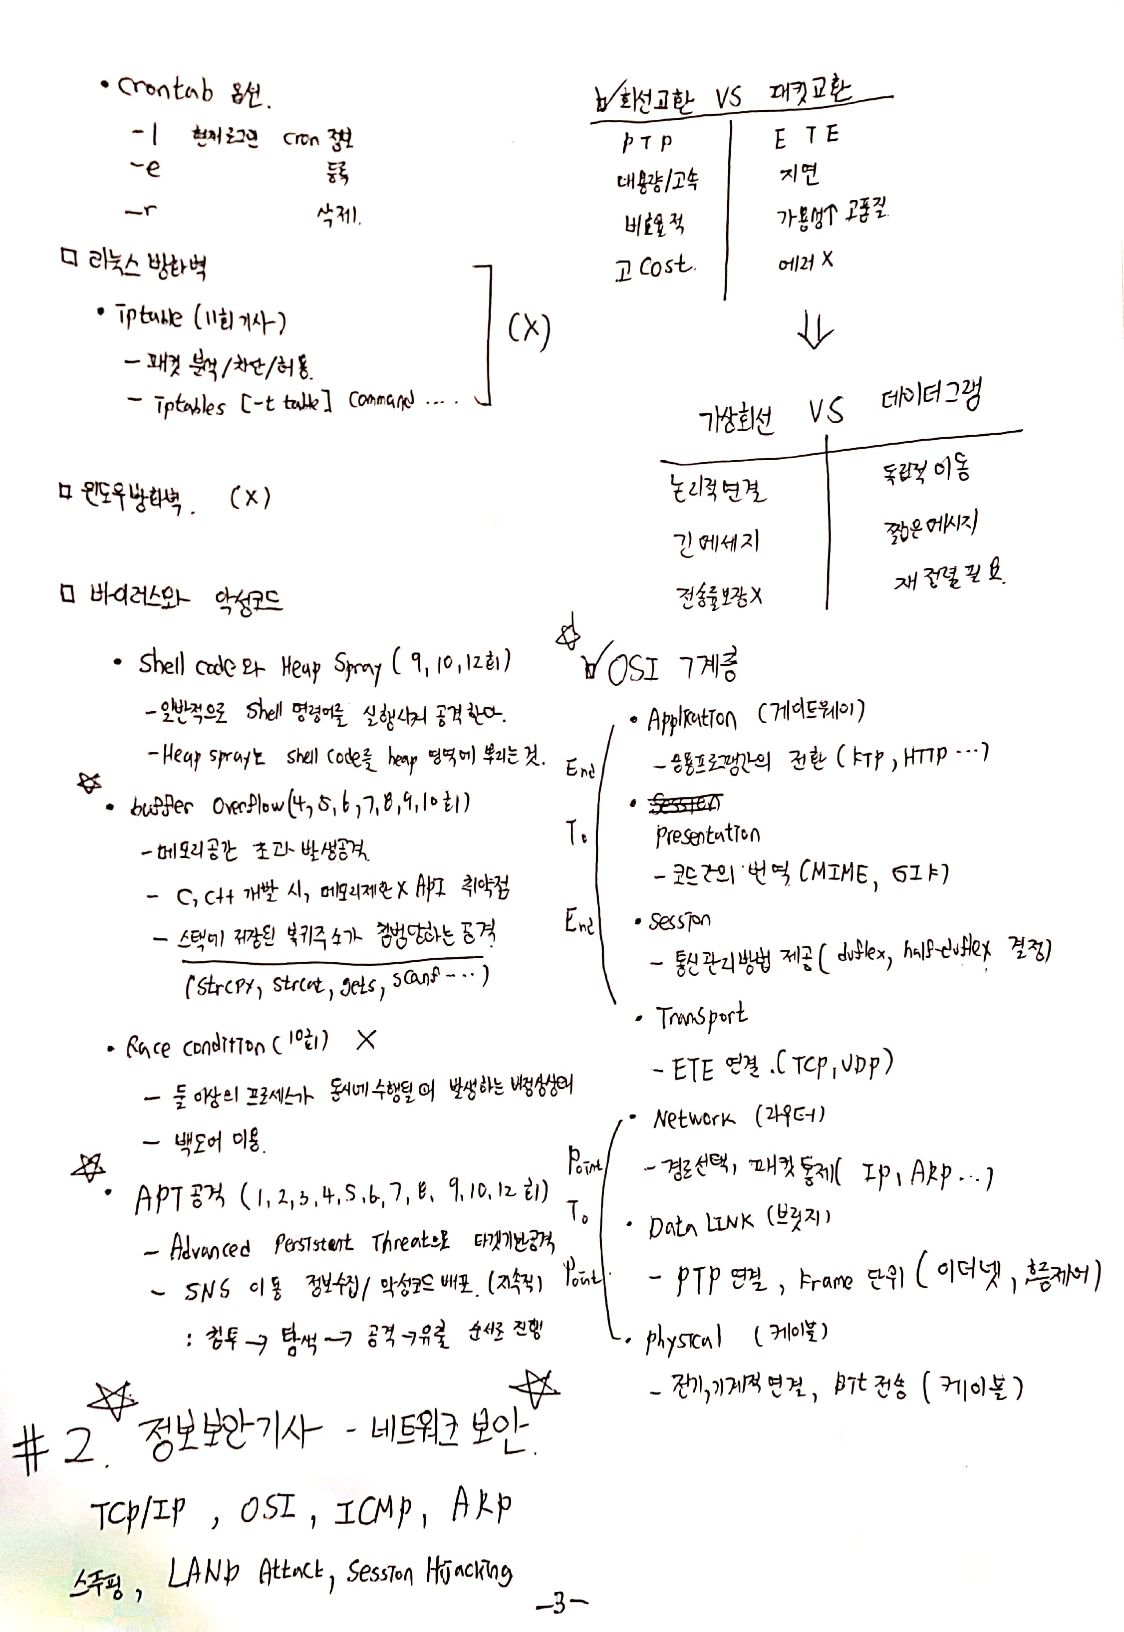 • Crontab 옵션.
-l 현재로그인 cron 정보
-e 등록
-r 삭제.
□ 리눅스 방화벽
• iptable (11회 기사)
- 패킷 분석/차단/허용.
- iptables [-t table] Command ....
(X)
□ 윈도우방화벽. (X)
□ 바이러스와 악성코드
• Shell code와 Heap Spray (9, 10, 12회)
- 일반적으로 Shell 명령어를 실행시켜 공격한다.
- Heap spray는 shell code를 heap 영역에 뿌리는 것.
☆
• buffer Overflow (4, 5, 6, 7, 8, 9, 10회)
- 메모리공간 초과 발생공격.
- C, C++ 개발 시, 메모리제한 X API 취약점
- 스택에 저장된 복귀주소가 침범당하는 공격
(Strcpy, Strcat, gets, scanf ...)
• Race condition (10회) X
- 둘 이상의 프로세스가 동시에 수행될 때 발생하는 비정상상태
- 백도어 이용.
☆
• APT 공격 (1, 2, 3, 4, 5, 6, 7, 8, 9, 10, 12회)
- Advanced Persistent Threat으로 타겟기반공격
- SNS 이용 정보수집/ 악성코드 배포. (지속적)
: 침투 → 탐색 → 공격 → 유출 순서로 진행
☆ ☆
#2. 정보보안기사 - 네트워크 보안.
TCP/IP, OSI, ICMP, ARP
스푸핑, LAND Attack, Session Hijacking
회선교환 VS 패킷교환
PTP E T E
대용량/고속 지연
비효율적 가용성↑ 고품질
고 Cost. 에러 X
⇓
가상회선 VS 데이터그램
논리적연결 독립적 이동
긴 메세지 짧은메시지
전송률보장X 재정렬 필요.
☆
OSI 7계층
End
To
End
• Application (게이트웨이)
- 응용프로그램간의 전환 (FTP, HTTP ...)
• Session
Presentation
- 코드간의 번역 (MIME, GIF)
• Session
- 통신관리방법 제공 (duflex, half-duflex 결정)
• Transport
- ETE 연결. (TCP, UDP)
Point
To
Point
• Network (라우터)
- 경로선택, 패킷통제 (IP, ARP ...)
• Data LINK (브릿지)
- PTP 연결, Frame 단위 (이더넷, 흐름제어)
• physical (케이블)
- 전기,기계적 연결, bit 전송 (케이블)
-3-